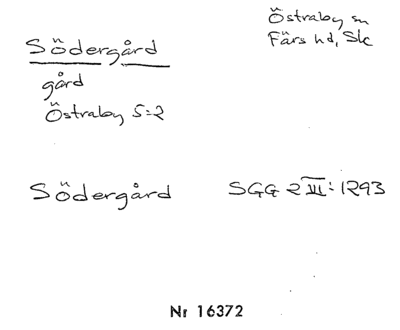 Södergård
Östraby sn
Färs hd, Sk
gård
Östraby 5:2
Södergård
SGG 2 III:1293
Nr 16372